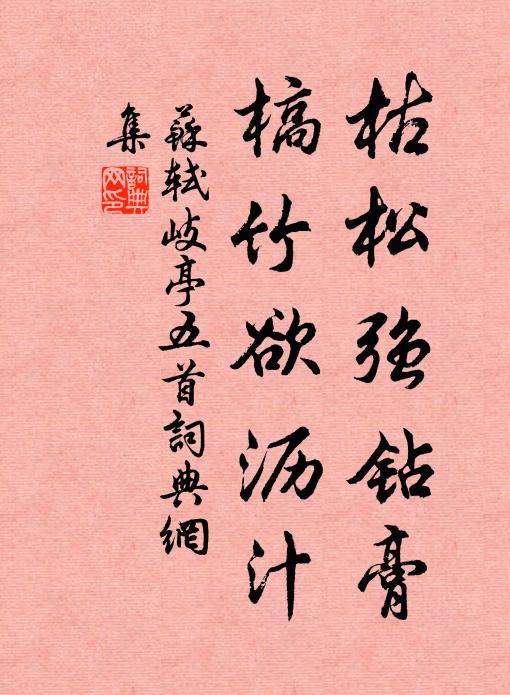 枯松强钻膏
槁竹欲沥汁
蘇軾岐亭五首詞典網
集
詞典网印